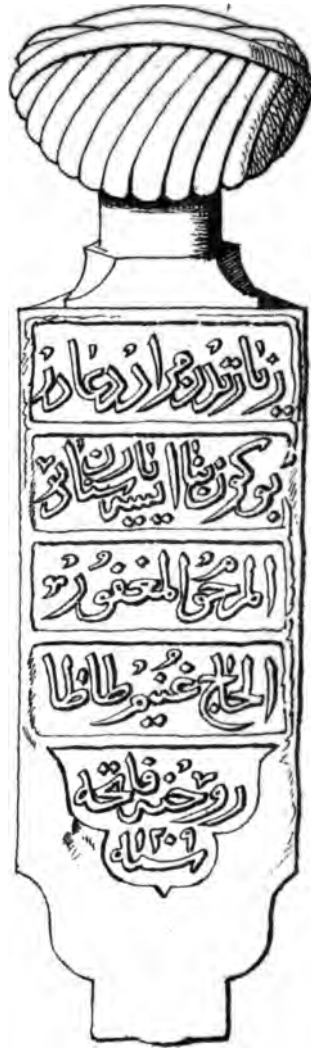 زيارتدن مراد دعادر
بوكون بنا ايسه يارن سنادر
المرحوم المغفور
الحاج غنيم
روحنه فاتحه
سنه ١٢٠٩